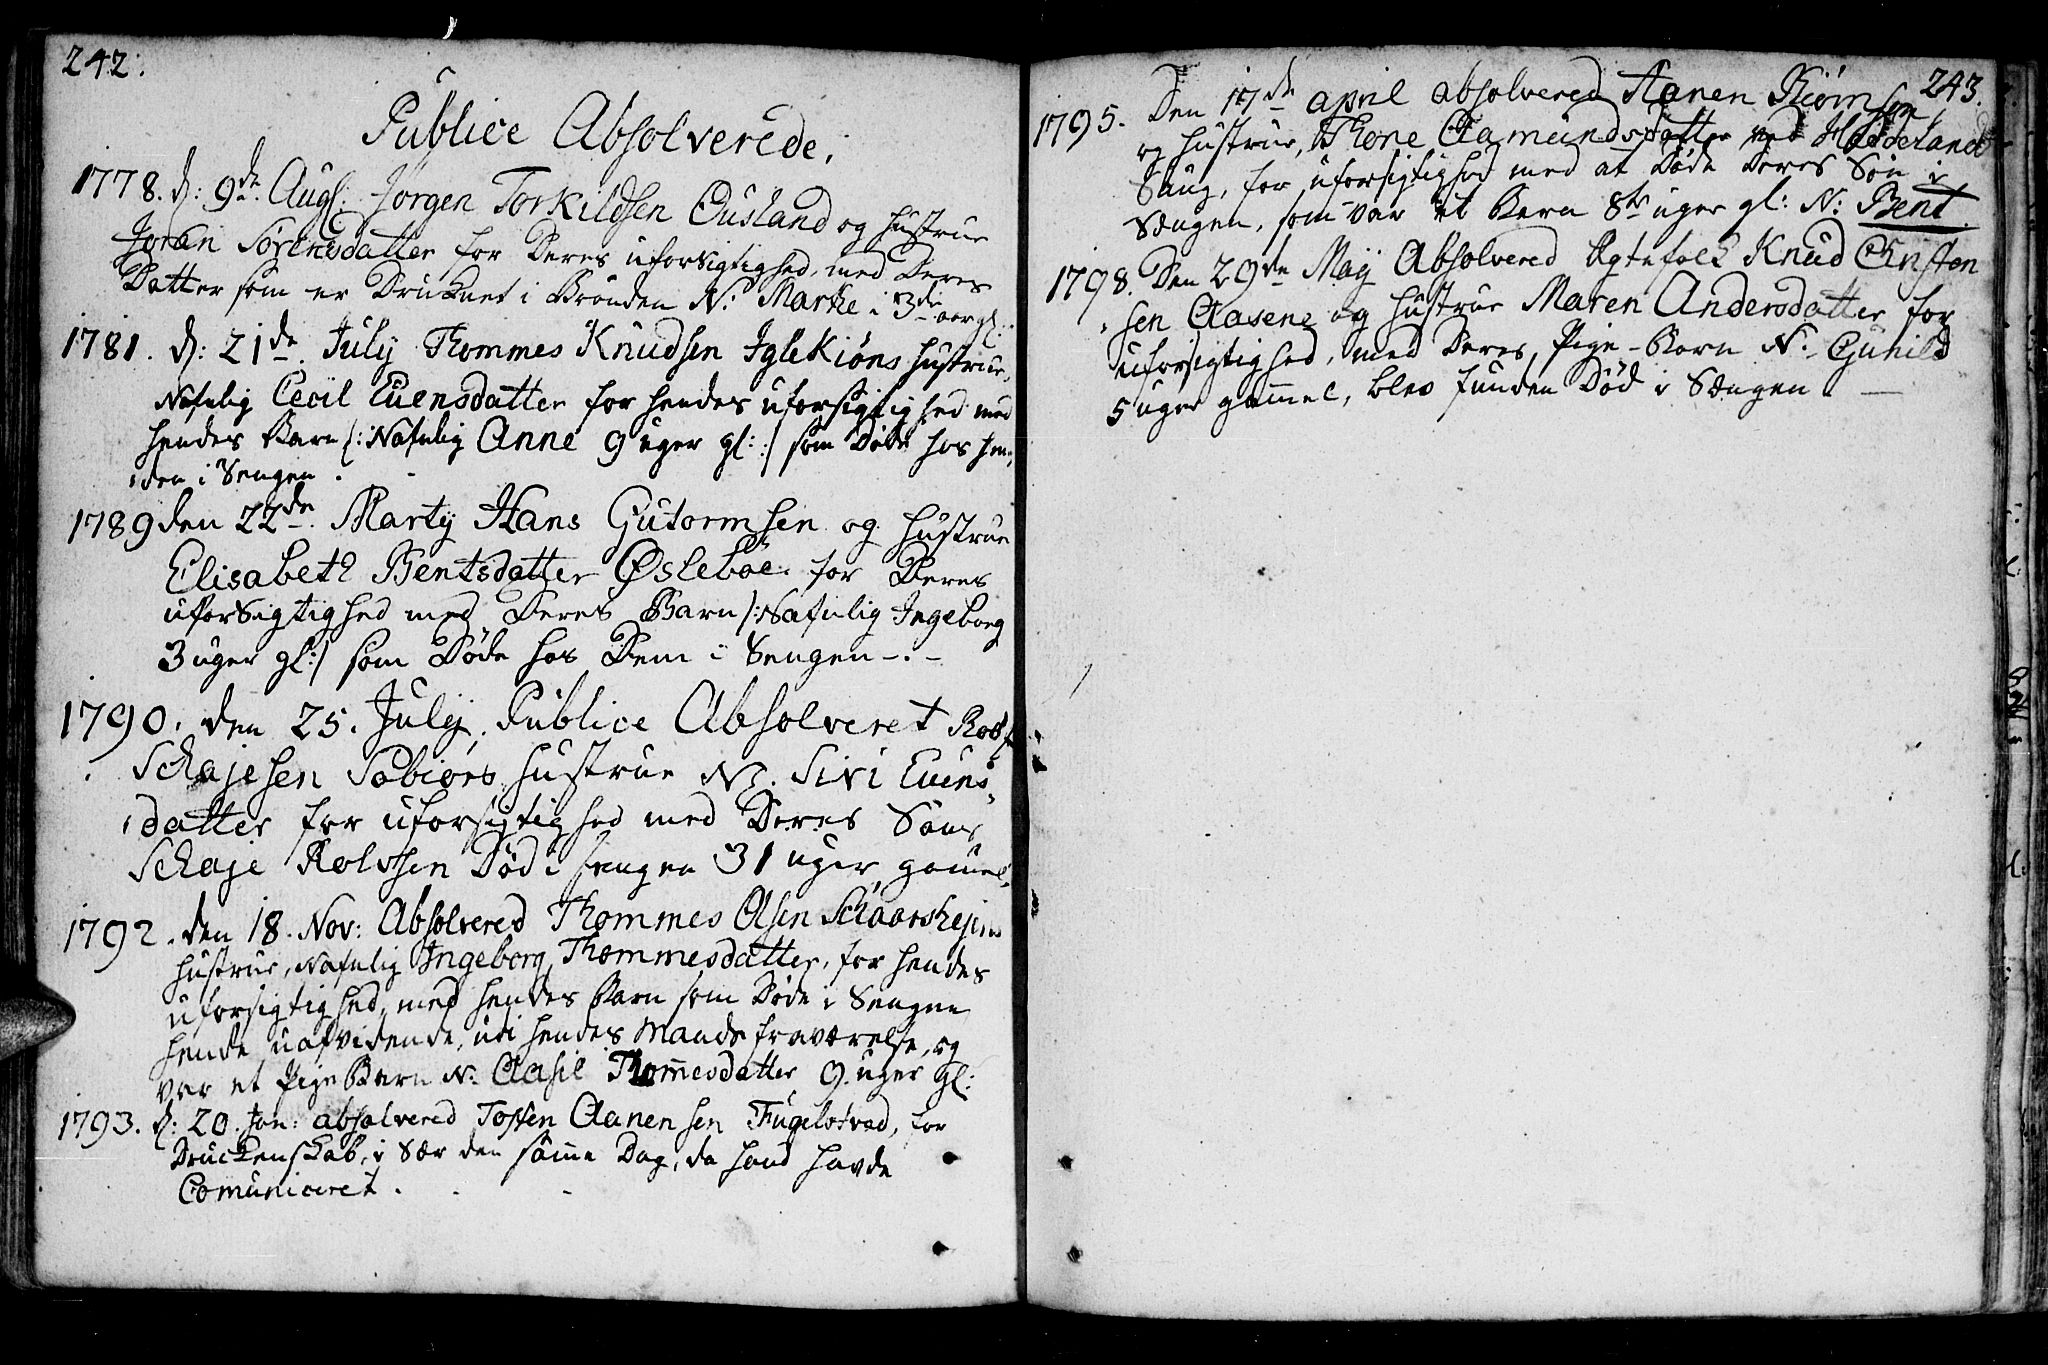 242.
Publice Absolverede.
1778. d: 9de Augs. Jörgen Torkildsen Ousland og hustrue
Joran Sörensdatter for Deres uforsigtighed, med Deres
Datter som er Drucknet i Brönden N: Marthe i 3de aar gl:
1781. d: 21de July Thommes Knudsen Iglekiöns hustrue,
Nafnlig Cecil Euensdatter for hendes uforsigtighed med
hendes Barn /: Nafnlig Anne 9 uger gl: :/ som Döde hos hen-
den i Sengen.
1789 den 22de Marty Hans Gutormsen og hustrue
Elisabeth Bentsdatter Øsleböe for Deres
uforsigtighed med Deres Barn /: Nafnlig Ingeborg
3 uger gl: :/ som Döde hos Dem i Sengen -.-
1790. den 25. July. Publice Absolveret Rolf
Schajesen hustrue N. Siri Euens-
datter for uforsigtighed med Deres Sön
Schaje Rolvsen Död i sengen 31 uger gamel.
1792. den 18. Nov: Absolvered Thommes Olsen
hustrue, Nafnlig Ingeborg Thommesdatter, for hendes
uforsigtighed, med hendes Barn som Döde i Sengen
hende uafvidende, udi hendes Mands fraværelse, og
var et Pige Barn N: Aasil Thom̄esdatter 9. uger gl:
1793. d: 20. Jan: absolvered Tosten Aanensen for
Druckenskab, i Sær den sam̄e Dag, da hand havde
Com̄uniceret.
243.
1795. Den 17de april absolvered Aanen
og hustrue, Thone Aamundsdatter ved
Saug, for uforsigtighed med at Döde Deres Sön i
Sængen, som var et Barn 8te uger gl: N: Bent.
1798. Den 29de Maÿ Absolvered Egtefolk Knud Christen
sen Aasene og hustrue Maren Andersdatter for
uforsigtighed, med Deres Pige-Barn N: Gunild
5 uger gam̄el, blev funden Död i Sængen.